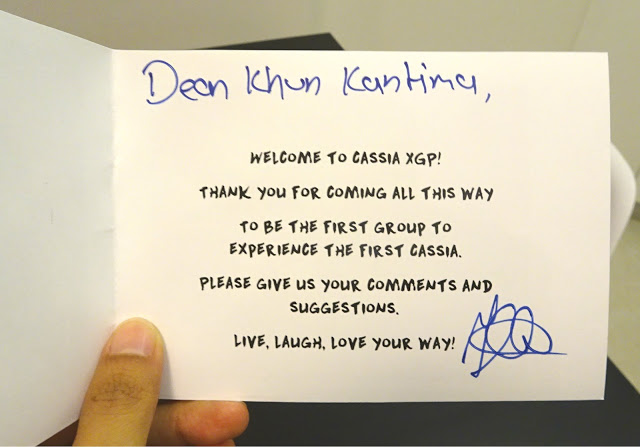 Dear Khun Kantima,
WELCOME TO CASSIA XGP!
THANK YOU FOR COMING ALL THIS WAY
TO BE THE FIRST GROUP TO
EXPERIENCE THE FIRST CASSIA.
PLEASE GIVE US YOUR COMMENTS AND
SUGGESTIONS.
LIVE, LAUGH, LOVE YOUR WAY!